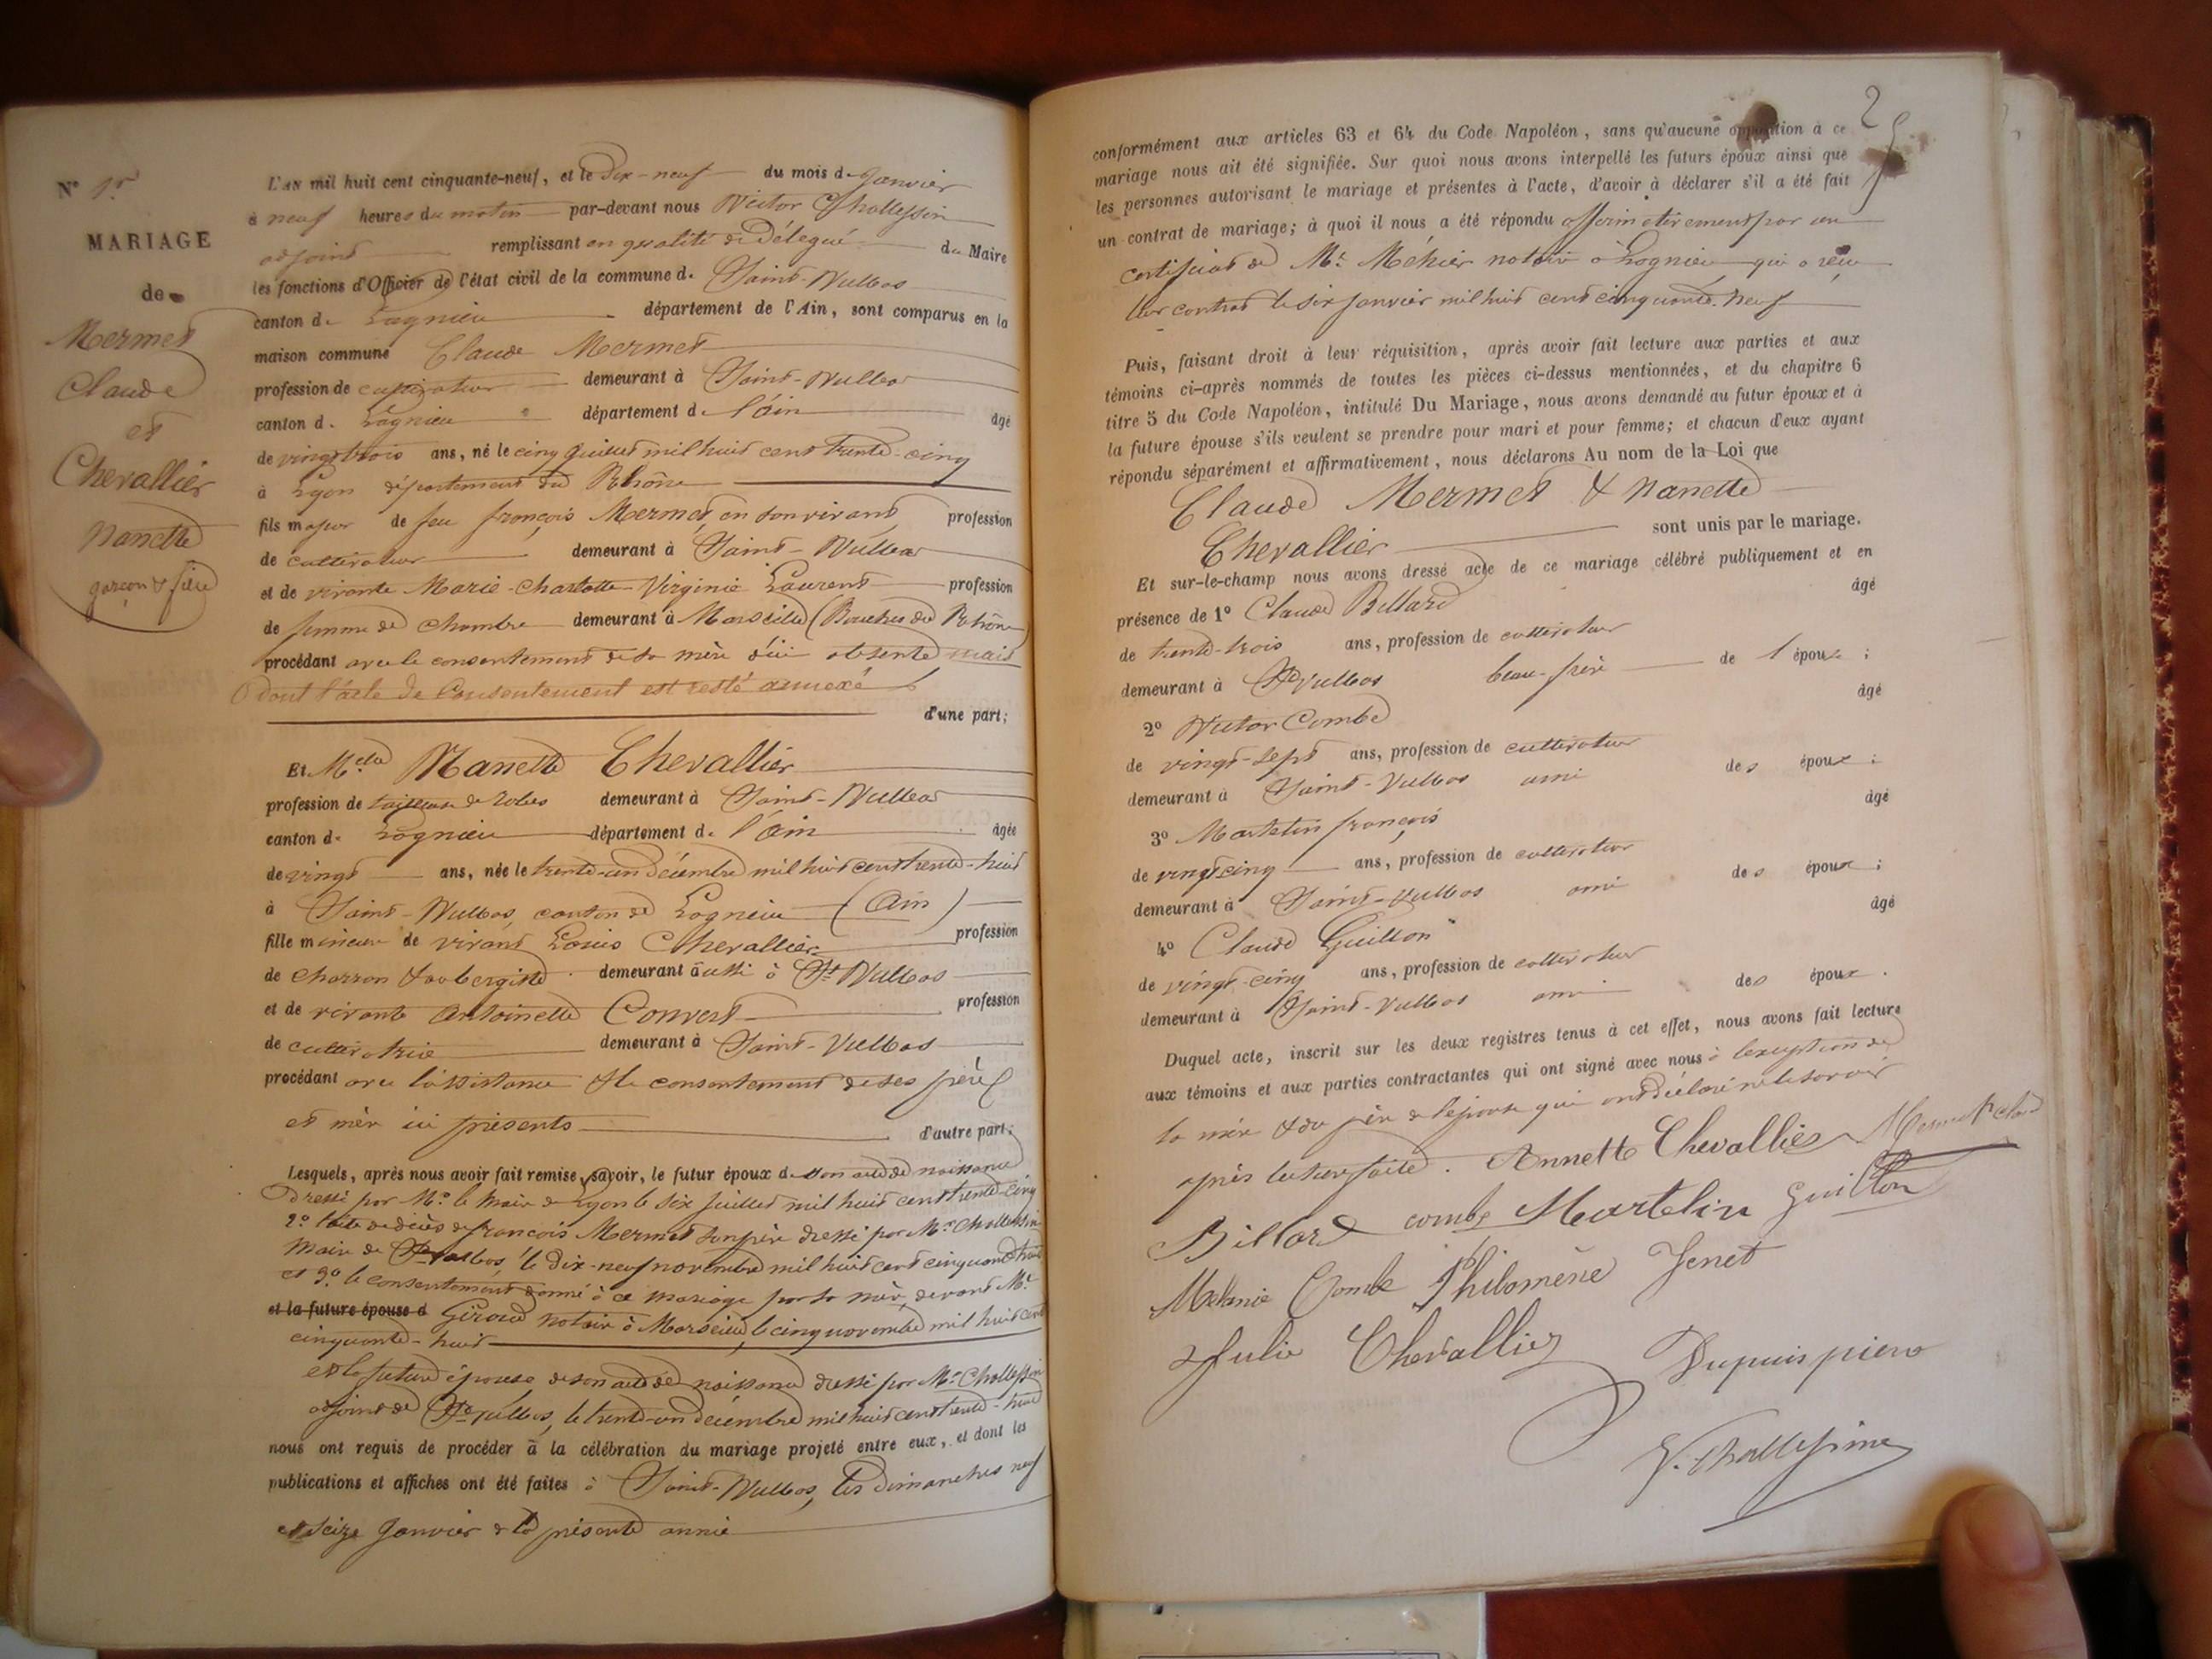 N° 1er
MARIAGE
de
Mermet
Claude
et
Chevallier
Nanette
garçon & fille
L'AN mil huit cent cinquante-neuf, et le Dix-neuf du mois de Janvier
à neuf heures du matin par-devant nous Victor Chollessin
adjoint remplissant en qualité de Délégué du Maire
les fonctions d'Officier de l'état civil de la commune de Saint-Vulbas
canton de Lagnieu département de l'Ain, sont comparus en la
maison commune Claude Mermet
profession de cultivateur demeurant à Saint-Vulbas
canton de Lagnieu département de l'ain âgé
de vingt trois ans, né le cinq Juillet mil huit cent trente-cinq
à Lyon département du Rhône
fils majeur de feu françois Mermet, en son vivant profession
de cultivateur demeurant à Saint-Vulbas
et de vivante Marie-Charlotte-Virginie Laurent profession
de femme de chambre demeurant à Marseille (Bouches du Rhône)
procédant avec le consentement de sa mère d'ici absente mais
dont l'acte de Consentement est resté annexé
d'une part;
Et Melle Nanette Chevallier
profession de tailleuse de robes demeurant à Saint-Vulbas
canton de Lagnieu département de l'ain âgée
de vingt ans, née le trente-un Décembre mil huit cent trente-huit
à Saint-Vulbas, canton de Lagnieu (Ain)
fille mineure de vivant Louis Chevallier profession
de charron & aubergiste demeurant aussi à St Vulbas
et de vivante Antoinette Convert profession
de cultivatrice demeurant à Saint-Vulbas
procédant avec l'assistance & le consentement de ses père
et mère ici présents d'autre part;
Lesquels, après nous avoir fait remise, savoir, le futur époux de son acte de naissance
Dressé par Mr le Maire de Lyon le six Juillet mil huit cent trente-cinq
2° l'acte de décès de françois Mermet son père dressé par Mr Chollessin
Maire de St Vulbas, le Dix-neuf novembre mil huit cent cinquante
et 3° le consentement donné à ce mariage par sa mère, devant Me
et la future épouse d Giroud notaire à Marseille, le cinq novembre mil huit cent
cinquante-huit
et la future épouse de son acte de naissance dressé par Mr Chollessin
adjoint de St Vulbas, le trente-un Décembre mil huit cent trente-huit
nous ont requis de procéder à la célébration du mariage projeté entre eux, et dont les
publications et affiches ont été faites à Saint-Vulbas, les Dimanches neuf
et seize Janvier de la présente année
2
conformément aux articles 63 et 64 du Code Napoléon, sans qu'aucune opposition à ce
mariage nous ait été signifiée. Sur quoi nous avons interpellé les futurs époux ainsi que
les personnes autorisant le mariage et présentes à l'acte, d'avoir à déclarer s'il a été fait
un contrat de mariage; à quoi il nous a été répondu affirmativement par un
certificat de Me Méhier notaire à Lagnieu qui a reçu
leur contrat le six Janvier mil huit cent cinquante-neuf
Puis, faisant droit à leur réquisition, après avoir fait lecture aux parties et aux
témoins ci-après nommés de toutes les pièces ci-dessus mentionnées, et du chapitre 6
titre 5 du Code Napoléon, intitulé Du Mariage, nous avons demandé au futur époux et à
la future épouse s'ils veulent se prendre pour mari et pour femme; et chacun d'eux ayant
répondu séparément et affirmativement, nous déclarons Au nom de la Loi que
Claude Mermet & Nanette
Chevallier sont unis par le mariage.
Et sur-le-champ nous avons dressé acte de ce mariage célébré publiquement et en
présence de 1° Claude Billard âgé
de trente-trois ans, profession de cultivateur
demeurant à St Vulbas beau-frère de l'époux;
2° Victor Combe âgé
de vingt-sept ans, profession de cultivateur
demeurant à Saint-Vulbas ami des époux;
3° Martelin françois âgé
de vingt cinq ans, profession de cultivateur
demeurant à Saint-Vulbas ami des époux;
4° Claude Guillon âgé
de vingt-cinq ans, profession de cultivateur
demeurant à Saint-Vulbas ami des époux.
Duquel acte, inscrit sur les deux registres tenus à cet effet, nous avons fait lecture
aux témoins et aux parties contractantes qui ont signé avec nous à l'exception de
la mère & du père de l'épouse qui ont déclaré ne le savoir
après lecture faite. Annette Chevallier Mermet
Billard combe Martelin Guillon
Melanie Combe Philomène Jenet
Julie Chevallier Dupuis piere
V. Chollessin